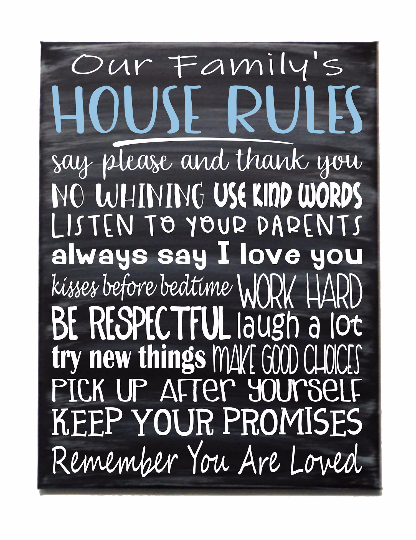 Our Family's
HOUSE RULES
say please and thank you
NO WHINING USE KIND WORDS
LISTEN TO YOUR PARENTS
always say I love you
kisses before bedtime WORK HARD
BE RESPECTFUL laugh a lot
try new things MAKE GOOD CHOICES
PICK UP AFTer YOURSELF
KEEP YOUR PROMISES
Remember You Are Loved